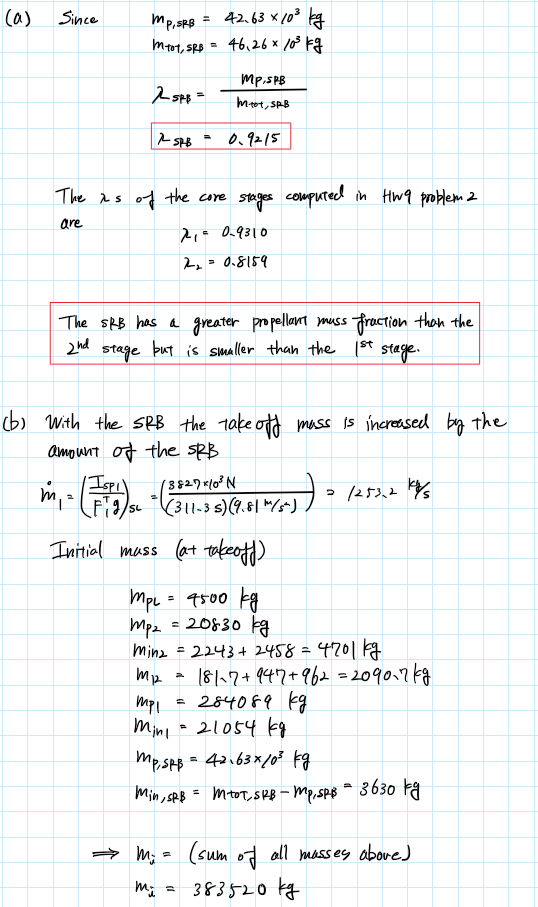 (a) Since m_p,SRB = 42.63 × 10³ kg
m_tot,SRB = 46.26 × 10³ kg
λ_SRB = m_p,SRB / m_tot,SRB
λ_SRB = 0.9215
The λs of the core stages computed in HW9 problem 2
are
λ₁ = 0.9310
λ₂ = 0.8159
The SRB has a greater propellant mass fraction than the
2nd stage but is smaller than the 1st stage.
(b) With the SRB the take off mass is increased by the
amount of the SRB
ṁ₁ = (I_sp1 / F₁ᵀ g)_SL = (3827×10³ N / (311.3 s)(9.81 m/s²)) = 1253.2 kg/s
Initial mass (at takeoff)
m_PL = 4500 kg
m_p2 = 20830 kg
m_in2 = 2243 + 2458 = 4701 kg
m_12 = 181.7 + 947 + 962 = 2090.7 kg
m_p1 = 284089 kg
m_in1 = 21054 kg
m_p,SRB = 42.63×10³ kg
m_in,SRB = m_tot,SRB − m_p,SRB = 3630 kg
⇒ m_i = (sum of all masses above)
m_i = 383520 kg